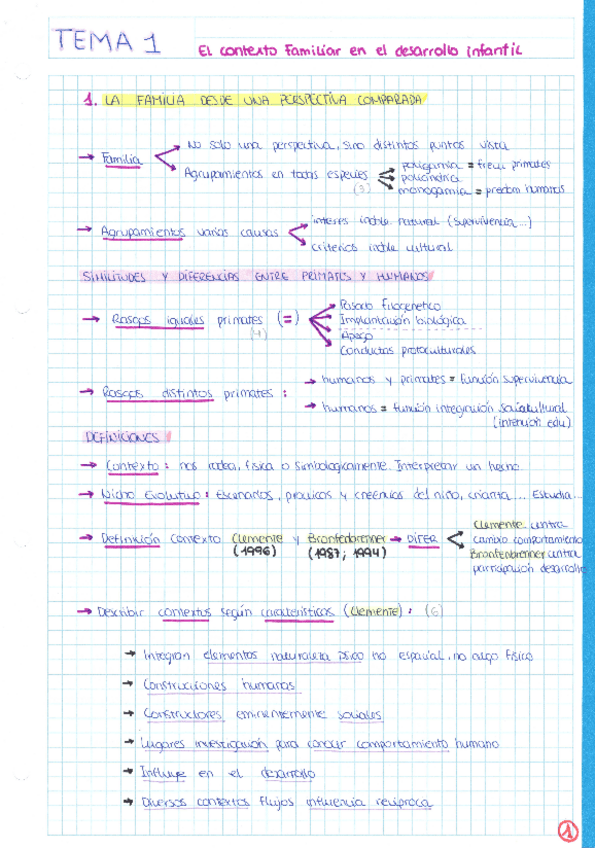 TEMA 1
El contexto Familiar en el desarrollo infantil
1. LA FAMILIA DESDE UNA PERSPECTIVA COMPARADA
→ Familia
No solo una perspectiva, sino distintos puntos vista
Agrupamientos en todas especies (3)
poligamia = frecu primates
poliandria
monogamia = predom humanos
→ Agrupamientos varias causas
interés índole natural (supervivencia...)
criterios índole cultural
SIMILITUDES Y DIFERENCIAS ENTRE PRIMATES Y HUMANOS
→ Rasgos iguales primates (=) (4)
Pasado filogenetico
Implantación biológica
Apego
Conductas protoculturales
→ Rasgos distintos primates :
→ humanos y primates = función supervivencia
→ humanos = función integración sociocultural
(intención edu)
DEFINICIONES
→ Contexto : nos rodea, física o simbologicamente. Interpretar un hecho
→ Nicho Evolutivo : Escenarios, prácticas y creencias del niño, crianza.... Estudia...
→ Definición contexto Clemente y Bronfenbrenner → DIFER
(1996) (1987; 1994)
Clemente centra
cambio comportamiento
Bronfenbrenner centra
participación desarrollo
→ Describir contextos según características (Clemente) : (6)
→ Integran elementos naturaleza psico no espacial, no algo físico
→ Construcciones humanas
→ Constructores eminentemente sociales
→ Lugares investigación para conocer comportamiento humano
→ Influye en el desarrollo
→ Diversos contextos flujos influencia recíproca
1